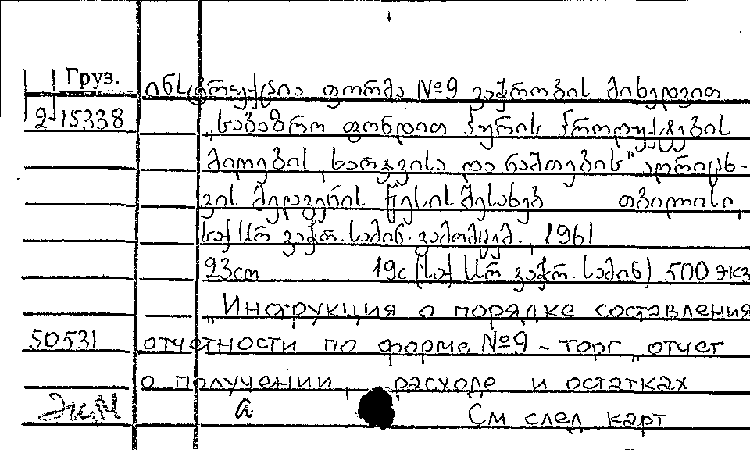 Груз. ინსტრუქცია ფორმა №9 ვაჭრობის მიხედვით
2-15338 „საბაზრო ფონდით პურის პროდუქტების
მიღების, ხარჯვისა და ნაშთების" აღრიცხ-
ვის შედგენის წესის შესახებ თბილისი,
საქ სსრ ვაჭრ. სამინ. გამომცემ., 1961
23см 19с (საქ სსრ ვაჭრ. სამინ) 500 экз
„Инструкция о порядке составления
50531 отчетности по форме №9 - торг „отчет
о получении, расходе и остатках
а См след карт